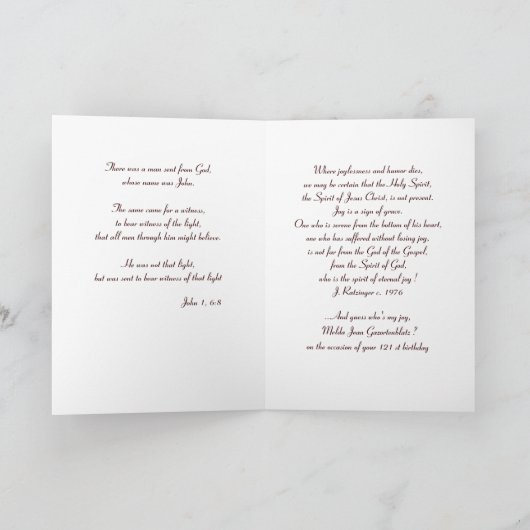 There was a man sent from God,
whose name was John.
The same came for a witness,
to bear witness of the light,
that all men through him might believe.
He was not that light,
but was sent to bear witness of that light
John 1, 6:8
Where joylessness and humor dies,
we may be certain that the Holy Spirit,
the Spirit of Jesus Christ, is not present.
Joy is a sign of grace.
One who is serene from the bottom of his heart,
one who has suffered without losing joy,
is not far from the God of the Gospel,
from the Spirit of God,
who is the spirit of eternal joy !
J. Ratzinger c. 1976
...And guess who's my joy,
Meldo Jean Gazortenblatz ?
on the occasion of your 121 st birthday